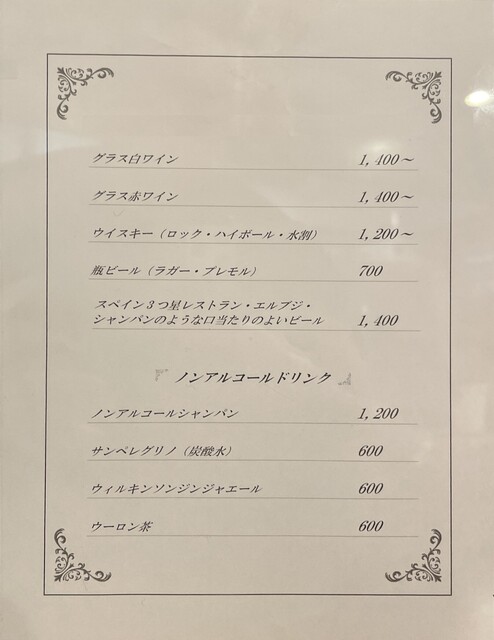 グラス白ワイン 1,400～
グラス赤ワイン 1,400～
ウイスキー（ロック・ハイボール・水割） 1,200～
瓶ビール（ラガー・プレモル） 700
スペイン３つ星レストラン・エルブジ・
シャンパンのような口当たりのよいビール 1,400
ノンアルコールドリンク
ノンアルコールシャンパン 1,200
サンペレグリノ（炭酸水） 600
ウィルキンソンジンジャエール 600
ウーロン茶 600